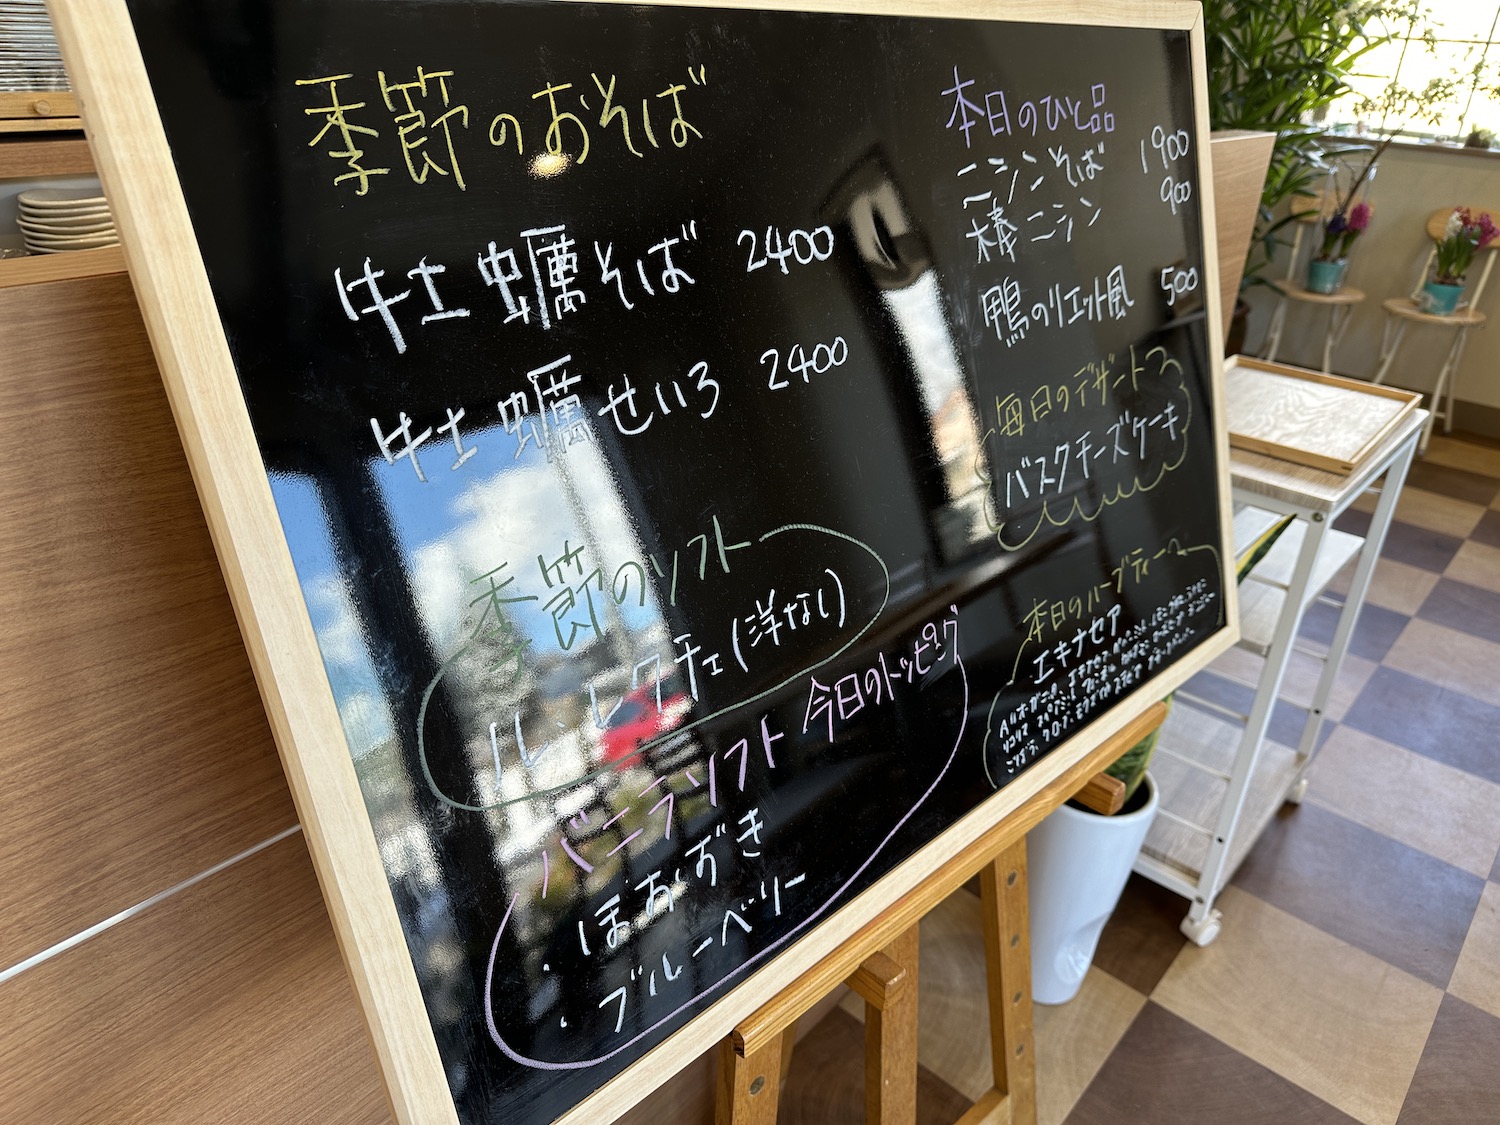 季節のおそば
牡蠣そば 2400
牡蠣せいろ 2400
季節のソフト
ル、レクチェ(洋なし)
バニラソフト 今日のトッピング
・ほおずき
・ブルーベリー
本日のひと品
ニシンそば 1900
棒ニシン 900
鴨のリエット風 500
毎日のデザート
バスクチーズケーキ
本日のハーブティー
エキナセア